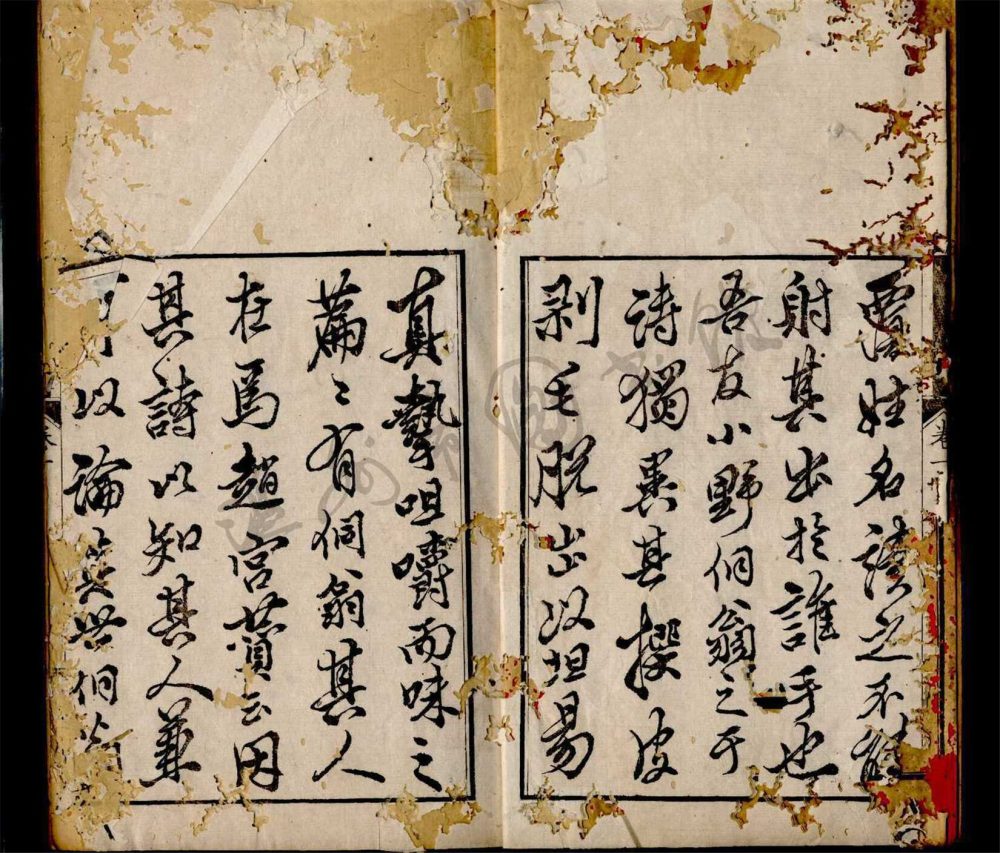 覆姓名讀之不能
射其出於誰手也
吾友小野侗翁之于
詩獨異其撰皮
剝毛脫出以坦易
真摯咀嚼而味之
篇〻有侗翁其人
在焉趙宮贊云因
其詩以知其人兼
可以論其世侗翁
卷一